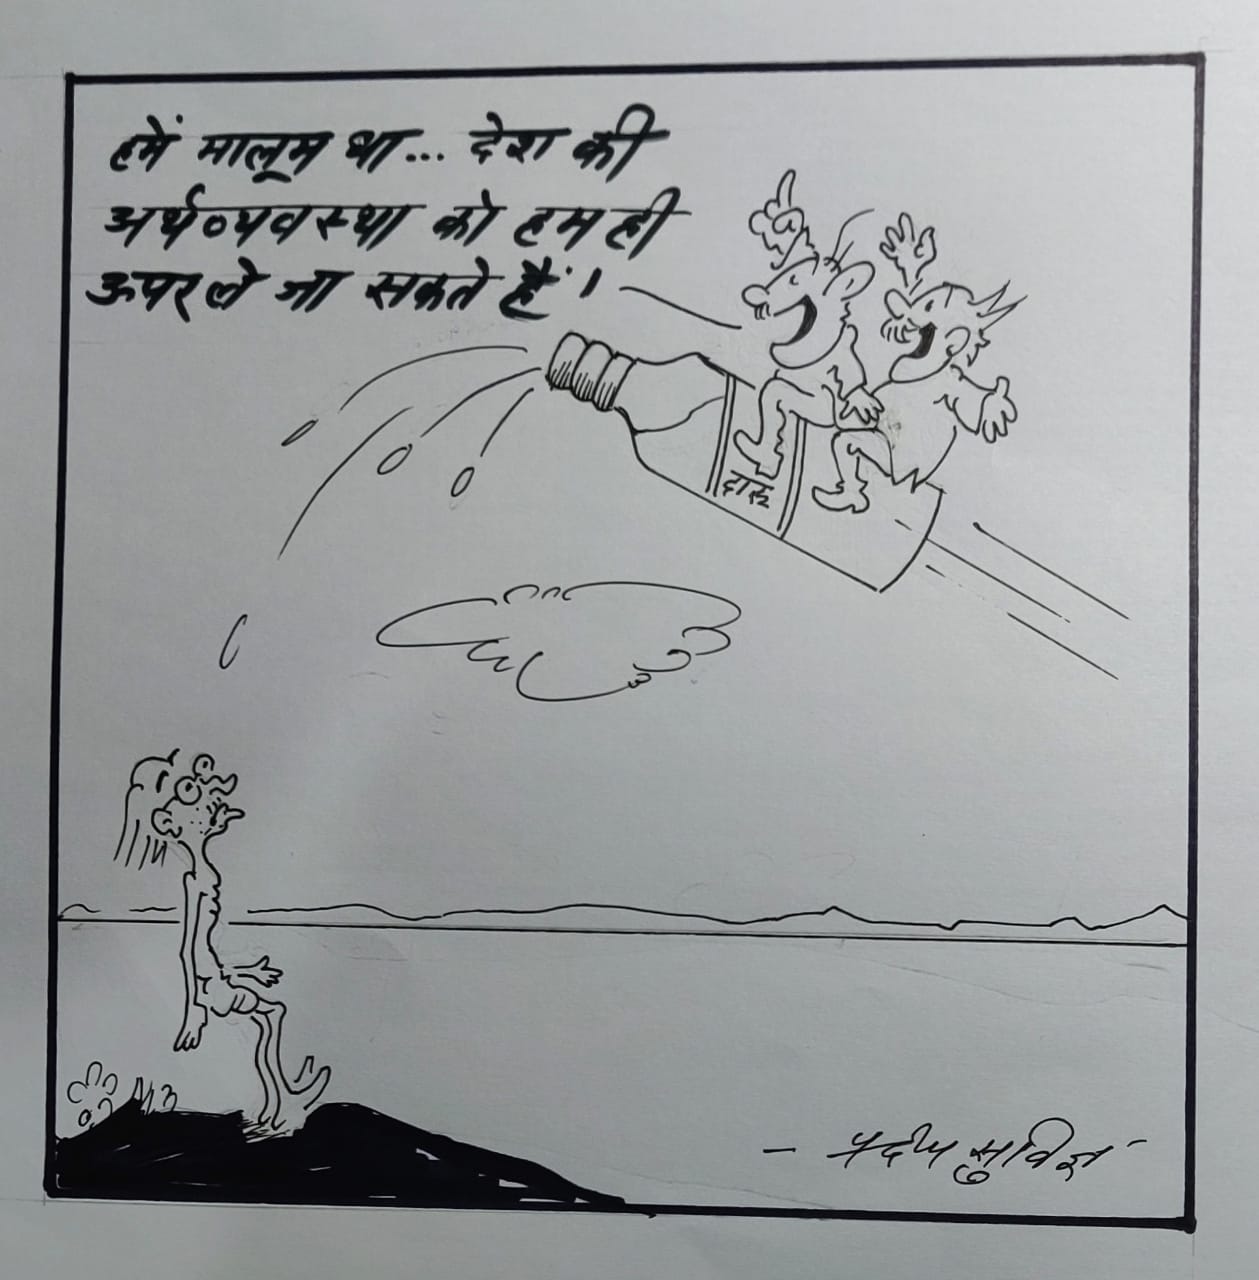 हमें मालूम था... देश की
अर्थव्यवस्था को हम ही
ऊपर ले जा सकते हैं।
दारू